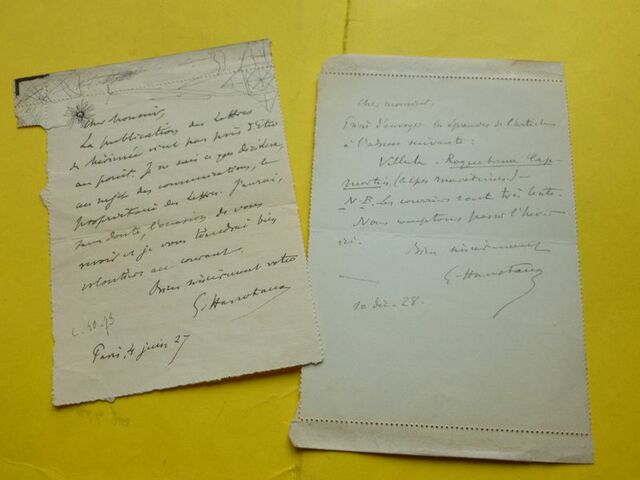 Cher monsieur,
La publication des Lettres
de Mérimée n'est pas près d'être
au point. Je ne sais ce que décidera
au sujet des communications, le
propriétaire des Lettres. J'aurai,
sans doute, l'occasion de vous
revoir et je vous tiendrai bien
volontiers au courant.
Bien sincèrement votre
G. Hanotaux
Paris, 4 juin 27
Cher monsieur,
Prière d'envoyer les épreuves de l'article
à l'adresse suivante :
Villula - Roquebrune Cap
Martin (Alpes maritimes) -
N-B. Les courriers sont très lents.
Nous comptons passer l'hiver
ici.
Bien sincèrement
G. Hanotaux
10 déc. 28.